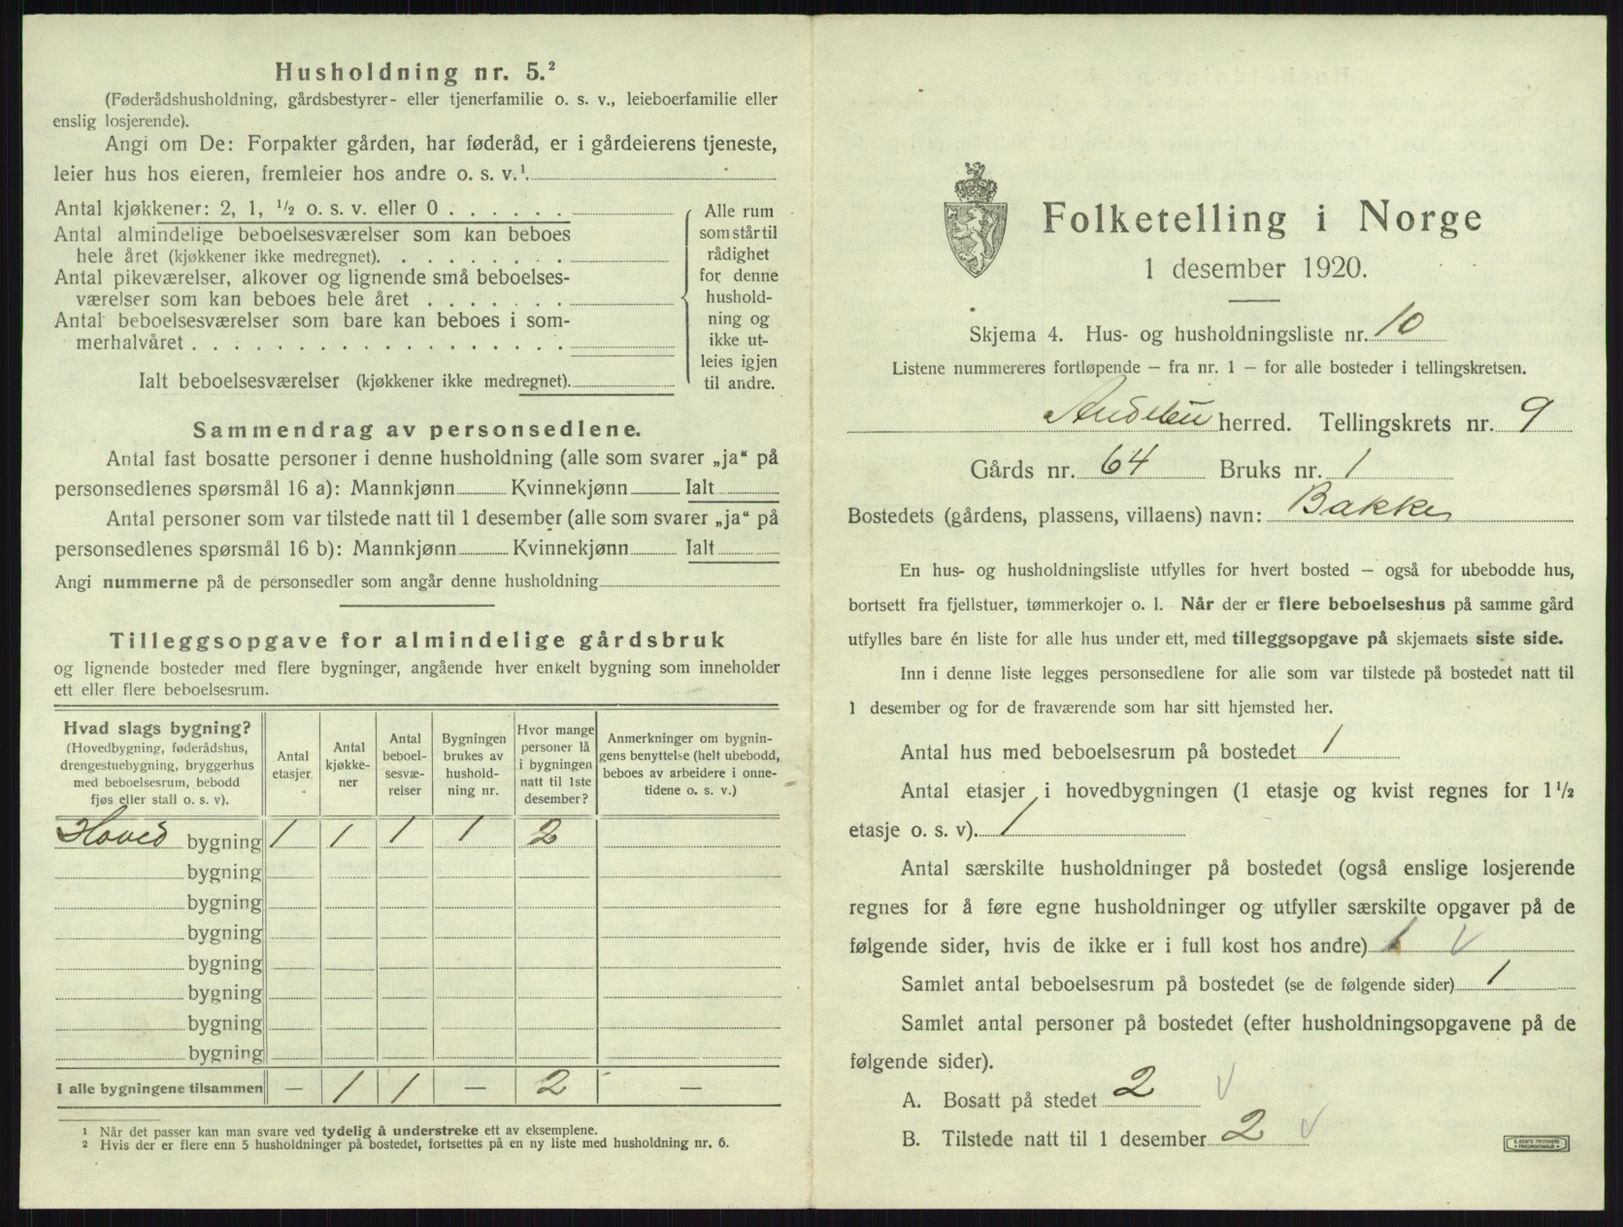 Husholdning nr. 5.²
(Føderådshusholdning, gårdsbestyrer- eller tjenerfamilie o. s. v., leieboerfamilie eller
enslig losjerende).
Angi om De: Forpakter gården, har føderåd, er i gårdeierens tjeneste,
leier hus hos eieren, fremleier hos andre o. s. v.¹.
Antal kjøkkener: 2, 1, ½ o. s. v. eller 0 . . . . . .
Antal almindelige beboelsesværelser som kan beboes
hele året (kjøkkener ikke medregnet). . . . . . . . .
Antal pikeværelser, alkover og lignende små beboelses-
værelser som kan beboes hele året . . . . . . .
Antal beboelsesværelser som bare kan beboes i som-
merhalvåret . . . . . . . . . . . . . . . . . .
Ialt beboelsesværelser (kjøkkener ikke medregnet).
Alle rum
som står til
rådighet
for denne
hushold-
ning og
ikke ut-
leies igjen
til andre.
Sammendrag av personsedlene.
Antal fast bosatte personer i denne husholdning (alle som svarer „ja“ på
personsedlenes spørsmål 16 a): Mannkjønn Kvinnekjønn Ialt
Antal personer som var tilstede natt til 1 desember (alle som svarer „ja“ på
personsedlenes spørsmål 16 b): Mannkjønn Kvinnekjønn Ialt
Angi nummerne på de personsedler som angår denne husholdning
Tilleggsopgave for almindelige gårdsbruk
og lignende bosteder med flere bygninger, angående hver enkelt bygning som inneholder
ett eller flere beboelsesrum.
Hvad slags bygning?
(Hovedbygning, føderådshus,
drengestuebygning, bryggerhus
med beboelsesrum, bebodd
fjøs eller stall o. s. v).
Antal
etasjer
Antal
kjøkke-
ner
Antal
beboel-
sesvæ-
relser
Bygningen
brukes av
hushold-
ning nr.
Hvor mange
personer lå
i bygningen
natt til 1ste
desember?
Anmerkninger om bygnin-
gens benyttelse (helt ubebodd,
beboes av arbeidere i onne-
tidene o. s. v.)
Hoved bygning 1 1 1 1 2
bygning
bygning
bygning
bygning
bygning
bygning
bygning
I alle bygningene tilsammen — 1 1 — 2 —
¹ Når det passer kan man svare ved tydelig å understreke ett av eksemplene.
² Hvis der er flere enn 5 husholdninger på bostedet, fortsettes på en ny liste med husholdning nr. 6.
Folketelling i Norge
1 desember 1920.
Skjema 4. Hus- og husholdningsliste nr. 10
Listene nummereres fortløpende — fra nr. 1 — for alle bosteder i tellingskretsen.
Andebu herred. Tellingskrets nr. 9
Gårds nr. 64 Bruks nr. 1
Bostedets (gårdens, plassens, villaens) navn: Bakke
En hus- og husholdningsliste utfylles for hvert bosted — også for ubebodde hus,
bortsett fra fjellstuer, tømmerkojer o. l. Når der er flere beboelseshus på samme gård
utfylles bare én liste for alle hus under ett, med tilleggsopgave på skjemaets siste side.
Inn i denne liste legges personsedlene for alle som var tilstede på bostedet natt til
1 desember og for de fraværende som har sitt hjemsted her.
Antal hus med beboelsesrum på bostedet 1
Antal etasjer i hovedbygningen (1 etasje og kvist regnes for 1½
etasje o. s. v). 1
Antal særskilte husholdninger på bostedet (også enslige losjerende
regnes for å føre egne husholdninger og utfyller særskilte opgaver på de
følgende sider, hvis de ikke er i full kost hos andre) 1 ✓
Samlet antal beboelsesrum på bostedet (se de følgende sider) 1
Samlet antal personer på bostedet (efter husholdningsopgavene på de
følgende sider).
A. Bosatt på stedet 2 ✓
B. Tilstede natt til 1 desember 2 ✓